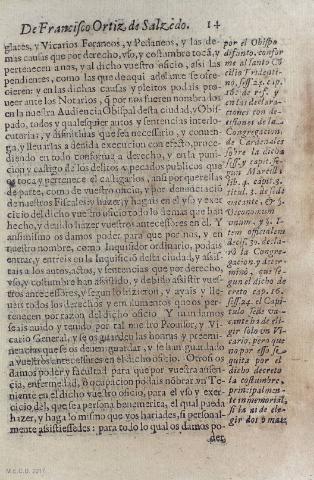 De Francisco Ortiz de Salzèdo. 14
glares, y Vicarios Foraneos, y Pedaneos, y las de-
mas causas que por derecho, vso, y costumbre toca, y
pertenece a nos, y al dicho vuestro oficio, assi las
pendientes, como las que de aqui adelante se ofre-
cieren: y en las dichas causas y pleitos podais pro-
ueer ante los Notarios, q̃ por nos fueren nombrados
en la nuestra Audiencia Obispal desta ciudad, y Obis-
pado, todos y qualesquier autos y sentencias interlo-
cutorias, y difinitiuas que sea necessario, y conuen-
ga, y lleuarlas a deuida execucion con efecto, proce-
diendo en todo conforme a derecho, y en la puni-
cion y castigo de los delitos y pecados publicos que
os toca y pertenece el castigarlos, ansi por querellas
de parte, como de vuestro oficio, y por denunciacio
de nuestros Fiscales y hazer, y hagais en el vso y exer-
cicio del dicho vuestro oficio todo lo demas que han
hecho, y deuido hazer vuestros antecessores en el. Y
assimismo os damos poder para que por nos, y en
nuestro nombre, como Inquisidor ordinario, podais
entrar, y entreis en la Inquisicion desta ciudad, y assis-
tais a los autos, actos, y sentencias que por derecho,
vso, y costumbre han assistido, y debido assistir vues-
tros antecessores, segun lo hizieron, y ayais y lle-
ueis todos los derechos y emolumentos que os per-
tenecen por razon del dicho oficio. Y mandamos
seais auido y tenido por tal nuestro Prouisor, y Vi-
cario General, y se os guarden las honras, y preemi-
nencias que se os deuen guardar, y se han guardado
a vuestros antecessores en el dicho oficio. Otrosi os
damos poder y facultad para que por vuestra ausen-
cia, enfermedad, ò ocupacion podais nõbrar vn Te-
niente en el dicho vuestro oficio, para el vso y exer-
cicio del, que sea persona benemerita, el qual pueda
hazer, y haga lo mismo que vos hariades, si personal-
mente assistiessedes: para todo lo qual os damos po-
der,
por el Obispo
difunto, confor
me al santo Cõ
cilio Tridenti-
no, sess. 24. c.
16. de ref. y
en las declara-
ciones por de-
cisiones de la
Congregacion
de Cardenales
sobre la dicha
sess. y capit. se-
gun Marcilla
lib. 4. capit. 3.
titul. 2. de sede
vacante, &
Oeconomum
vnum, y §.
Item officialem
decis. 30. decla-
rò la Congre-
gacion, y deter-
minò, que se-
gun el dicho de
creto cap. 16.
sess. 24. el Capi
tulo sede va-
cante ha de ele-
gir solo vn Vi-
cario, pero que
no por esso se
quita por el
dicho decreto
la costumbre,
principalmen-
te inmemorial,
si la ai de ele-
gir dos o mas,
M.E.C.D. 2017